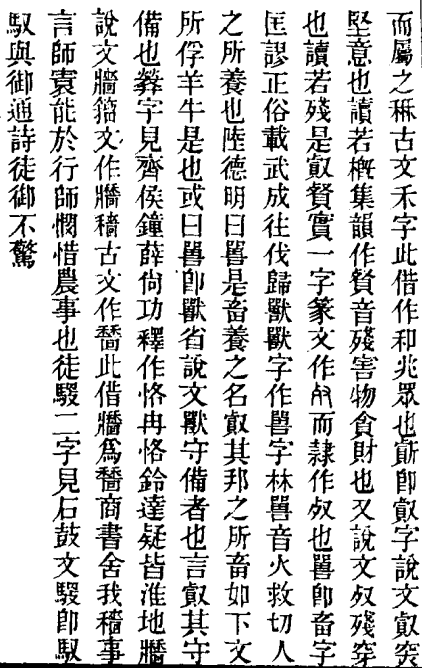 而屬之秝古文禾字此借作和兆眾也卽叡字說文叡突
堅意也讀若概集韻作䝨音殘害物貪財也又說文奴殘穿
也讀若殘是叡䝨實一字篆文作而隸作奴也嘼卽畜字
匡謬正俗載武成往伐歸獸獸字作嘼字林嘼音火救切人
之所養也陸德明曰嘼是畜養之名叡其邦之所畜如下文
所俘羊牛是也或曰嘼卽獸省說文獸守備者也言叡其守
備也字見齊侯鐘薛尙功釋作恪冉恪鈴達疑皆淮地牆
說文牆籒文作牆穡古文作嗇此借牆爲嗇商書舍我穡事
言師袁能於行師憫惜農事也徒騣二字見石鼓文騣卽馭
馭與御通詩徒御不驚